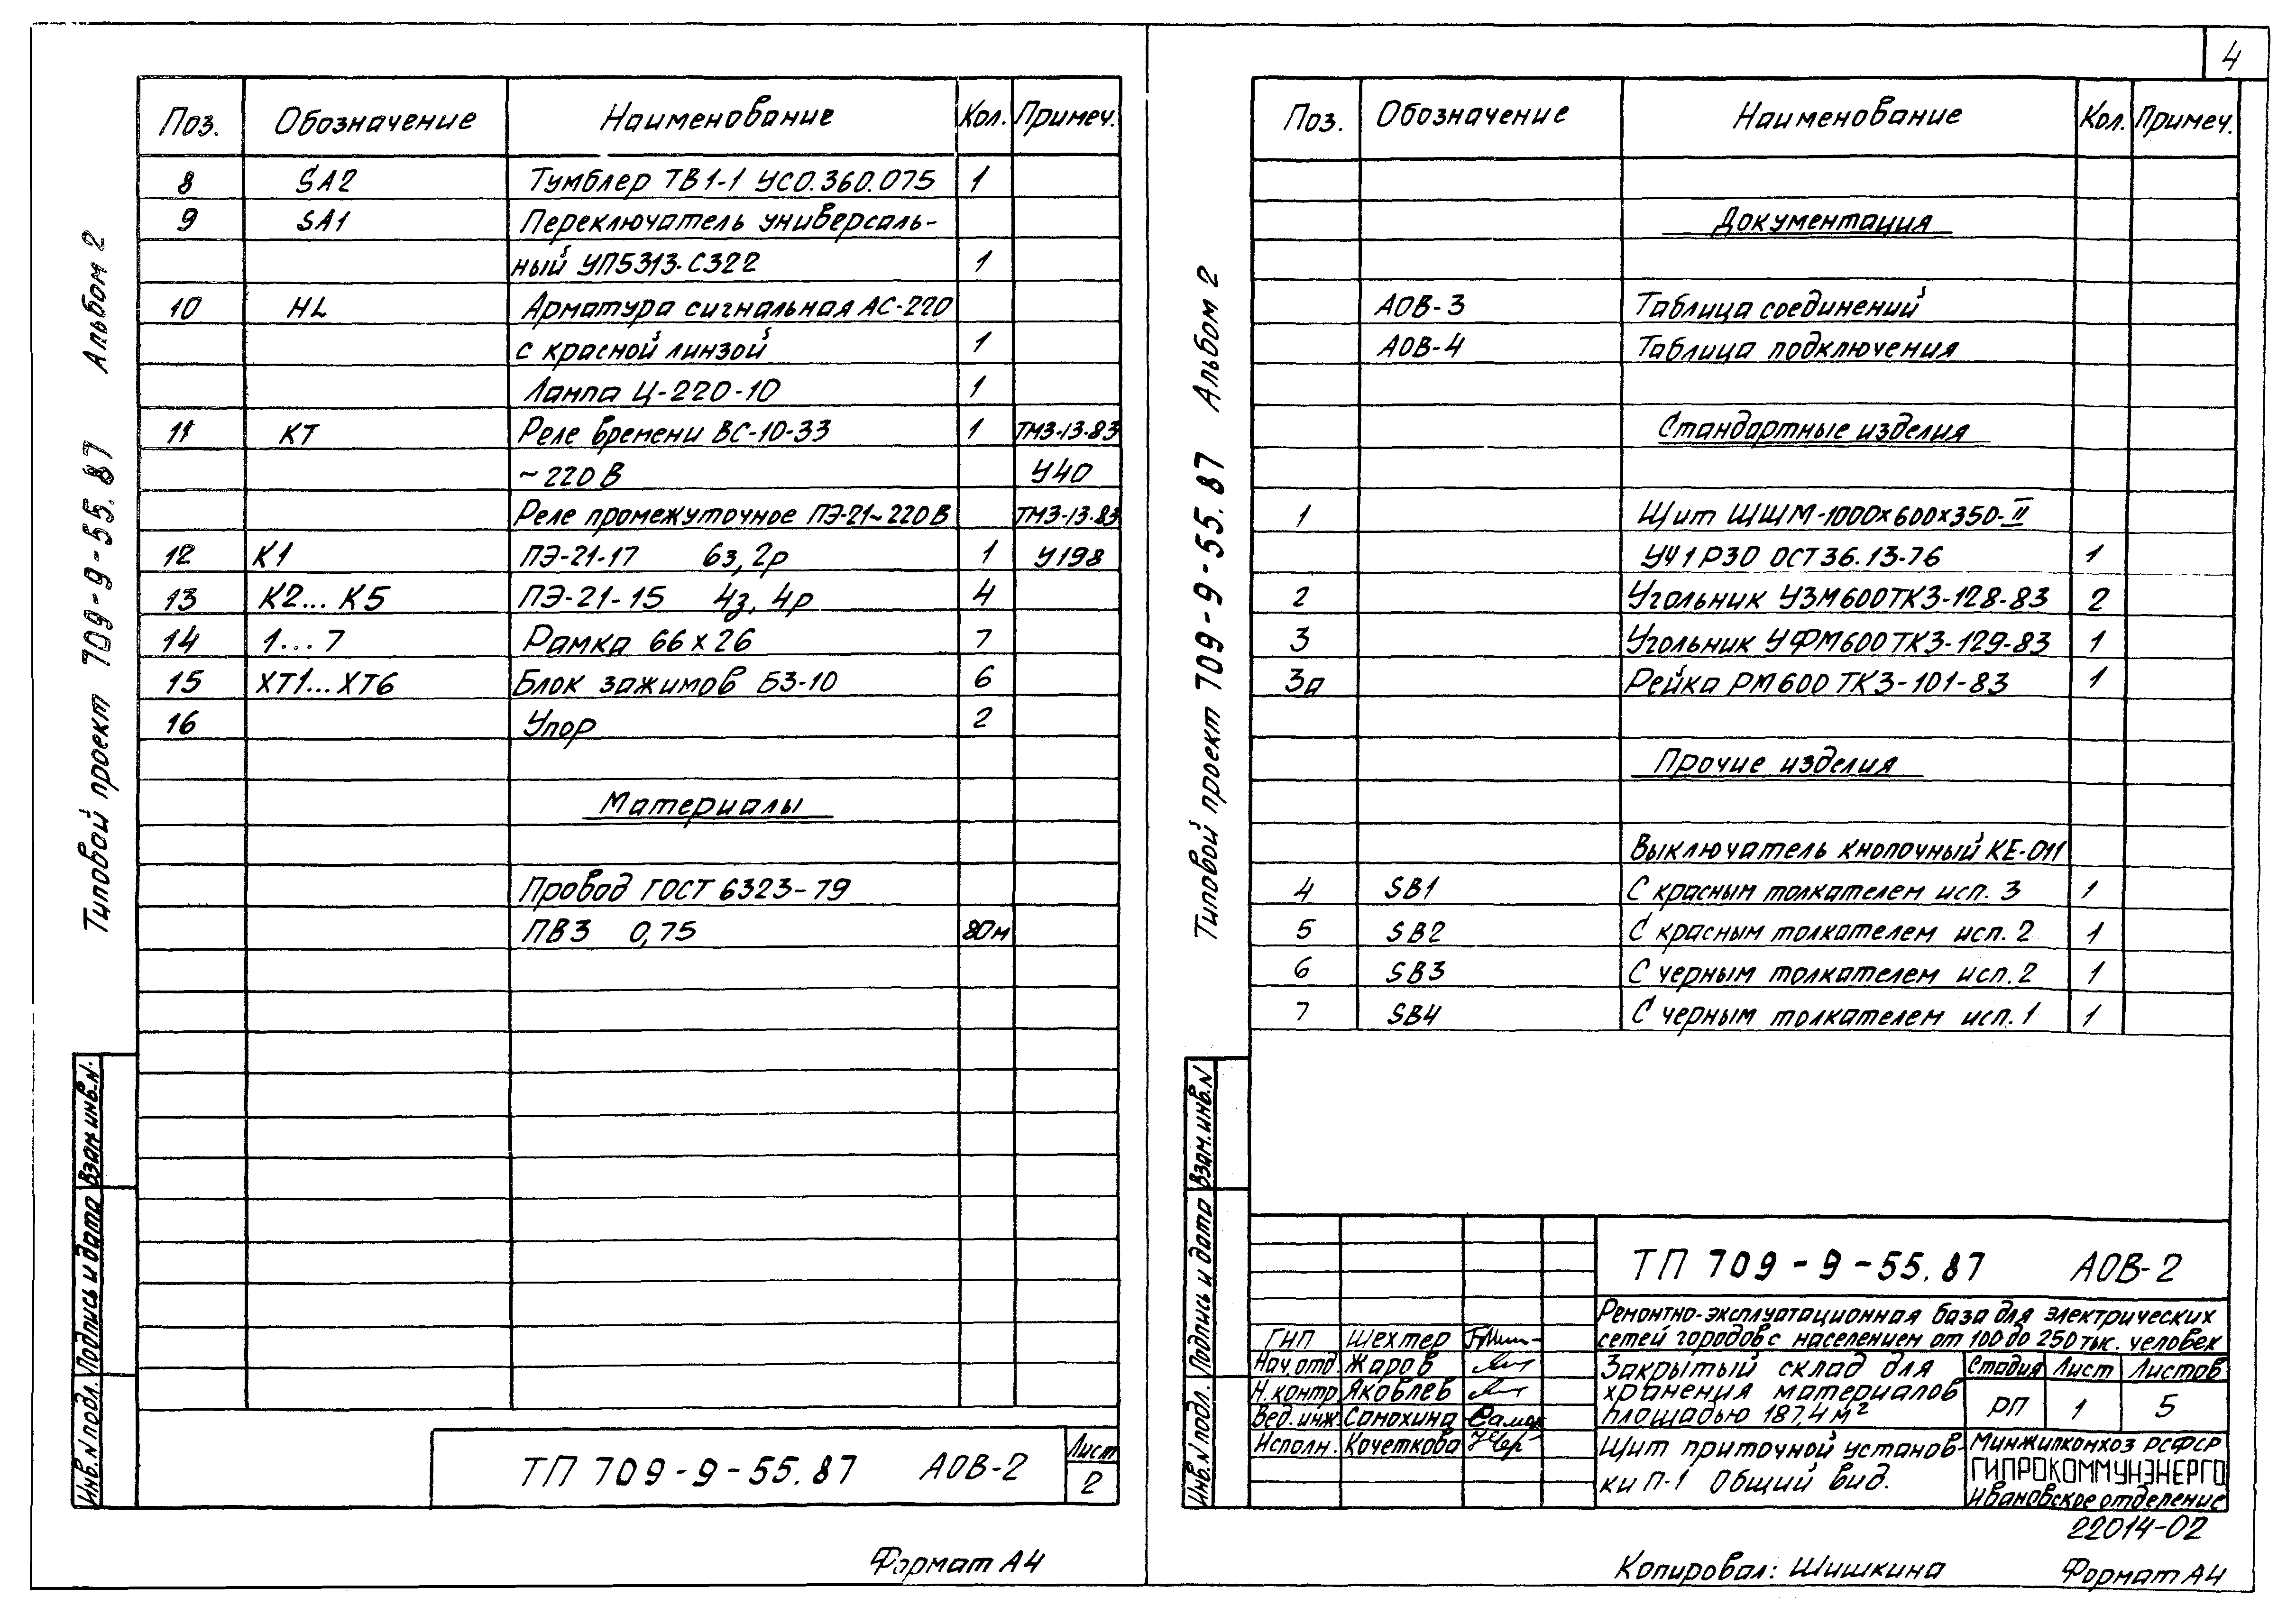 4
Типовой проект 709-9-55.87 Альбом 2
Поз. Обозначение Наименование Кол. Примеч.
8 SA2 Тумблер ТВ1-1 УСО.360.075 1
9 SA1 Переключатель универсаль-
ный УП5313-С322 1
10 HL Арматура сигнальная АС-220
с красной линзой 1
Лампа Ц-220-10 1
11 КТ Реле времени ВС-10-33 1 ТМ3-13-83
~220В У40
Реле промежуточное ПЭ-21~220В ТМ3-13-83
12 К1 ПЭ-21-17 6з, 2р 1 У198
13 К2... К5 ПЭ-21-15 4з, 4р 4
14 1...7 Рамка 66х26 7
15 ХТ1...ХТ6 Блок зажимов БЗ-10 6
16 Упор 2
Материалы
Провод ГОСТ 6323-79
ПВ3 0,75 80м
Взам.инв.N
Подпись и дата
Инв.N подл.
ТП 709-9-55.87 АОВ-2
Лист
2
Формат А4
Типовой проект 709-9-55.87 Альбом 2
Поз. Обозначение Наименование Кол. Примеч.
Документация
АОВ-3 Таблица соединений
АОВ-4 Таблица подключения
Стандартные изделия
1 Щит ЩШМ-1000х600х350-II
УЧ1Р30 ОСТ36.13-76 1
2 Угольник УЗМ600ТК3-128-83 2
3 Угольник УФМ600ТК3-129-83 1
3а Рейка РМ600 ТК3-101-83 1
Прочие изделия
Выключатель кнопочный КЕ-011
4 SB1 С красным толкателем исп. 3 1
5 SB2 С красным толкателем исп. 2 1
6 SB3 С черным толкателем исп. 2 1
7 SB4 С черным толкателем исп. 1 1
Взам.инв.N
Подпись и дата
Инв.N подл.
ТП 709-9-55.87 АОВ-2
Ремонтно-эксплуатационная база для электрических
сетей городов с населением от 100 до 250 тыс. человек
ГИП Шехтер
Нач.отд. Жаров
Н.контр. Яковлев
Вед.инж. Самохина
Исполн. Кочеткова
Закрытый склад для
хранения материалов
площадью 187,4м²
Стадия Лист Листов
РП 1 5
Щит приточной установ-
ки П-1 Общий вид.
Минжилкомхоз РСФСР
ГИПРОКОММУНЭНЕРГО
Ивановское отделение
22014-02
Копировал: Шишкина Формат А4